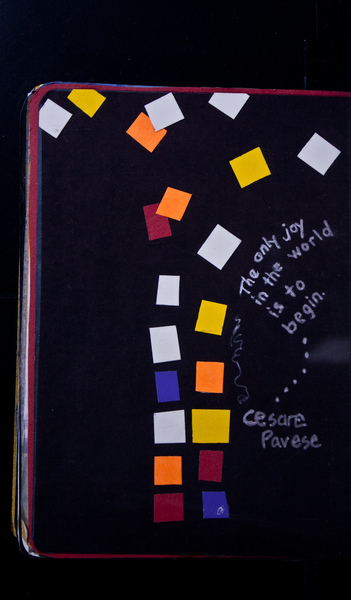 The only joy
in the world
is to
begin.
Cesare
Pavese